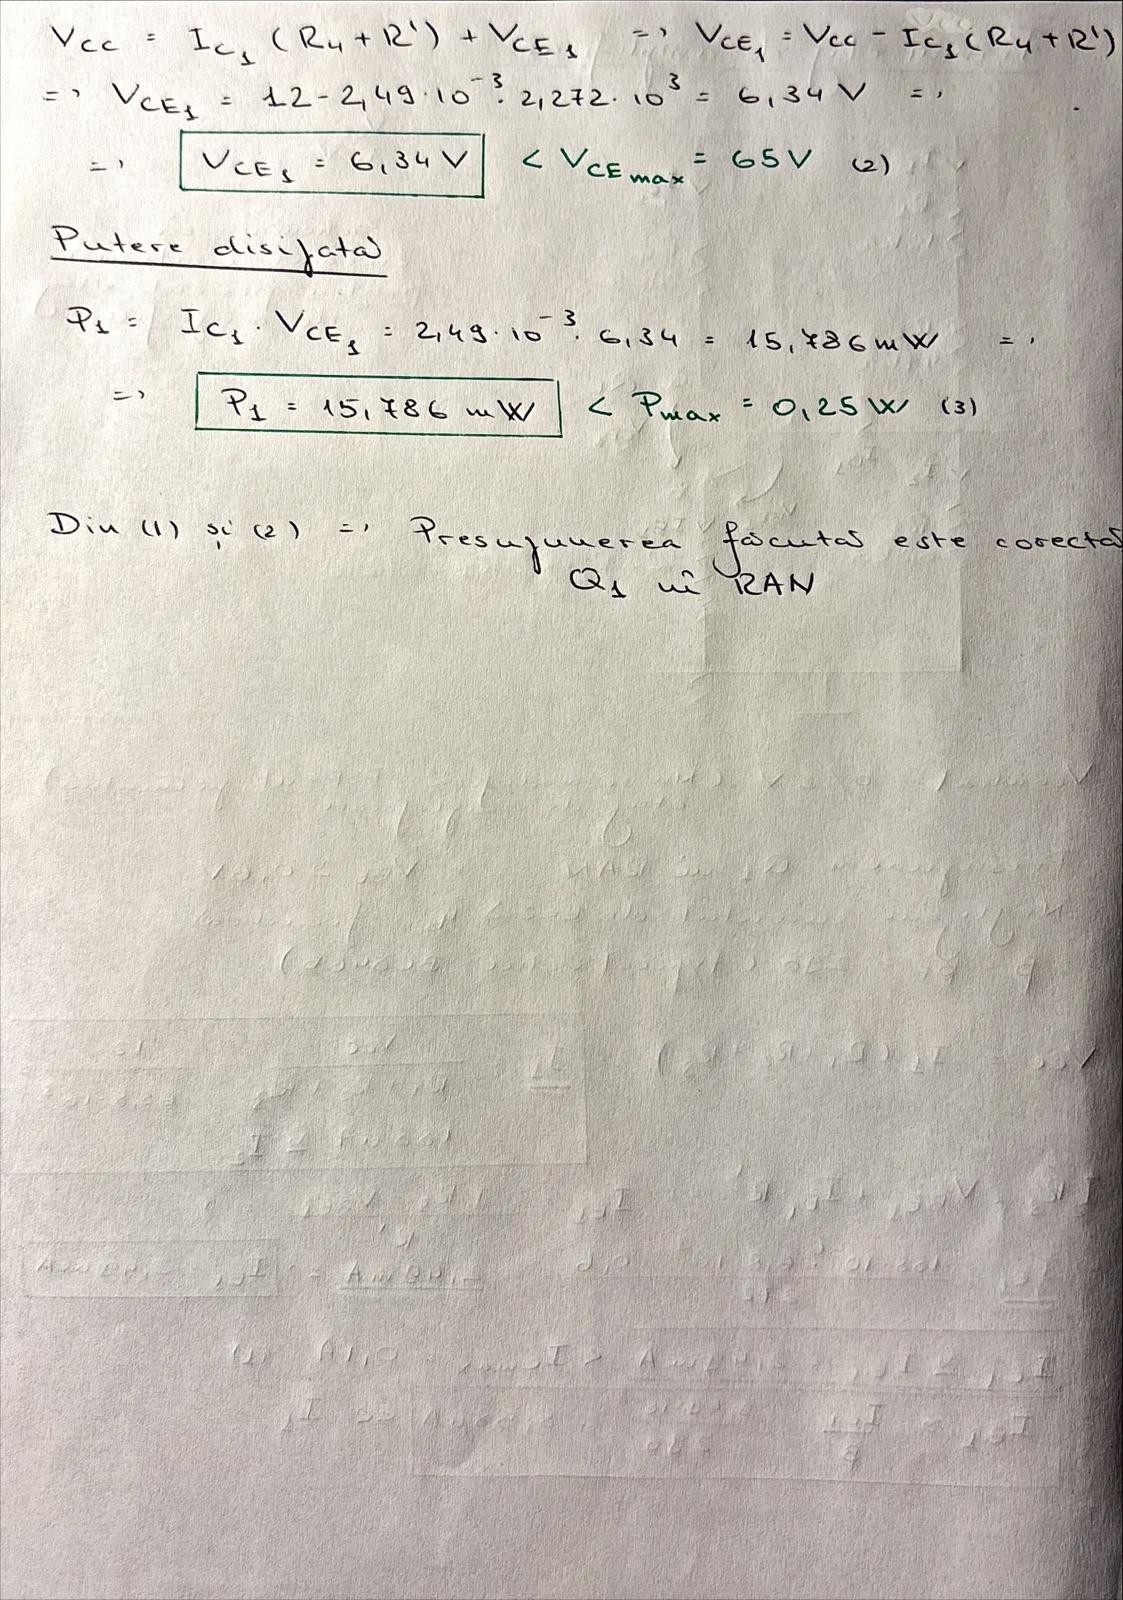 Vcc = Ic₁ (R₄ + R') + VCE₁ => VCE₁ = Vcc - Ic₁ (R₄ + R')
=> VCE₁ = 12 - 2,49·10⁻³·2,272·10³ = 6,34 V =>
=> VCE₁ = 6,34 V < VCE max = 65 V (2)
Putere disipată
P₁ = Ic₁ · VCE₁ = 2,49·10⁻³·6,34 = 15,786 mW =>
=> P₁ = 15,786 mW < Pmax = 0,25 W (3)
Din (1) și (2) => Presupunerea făcută este corectă
Q₁ în RAN